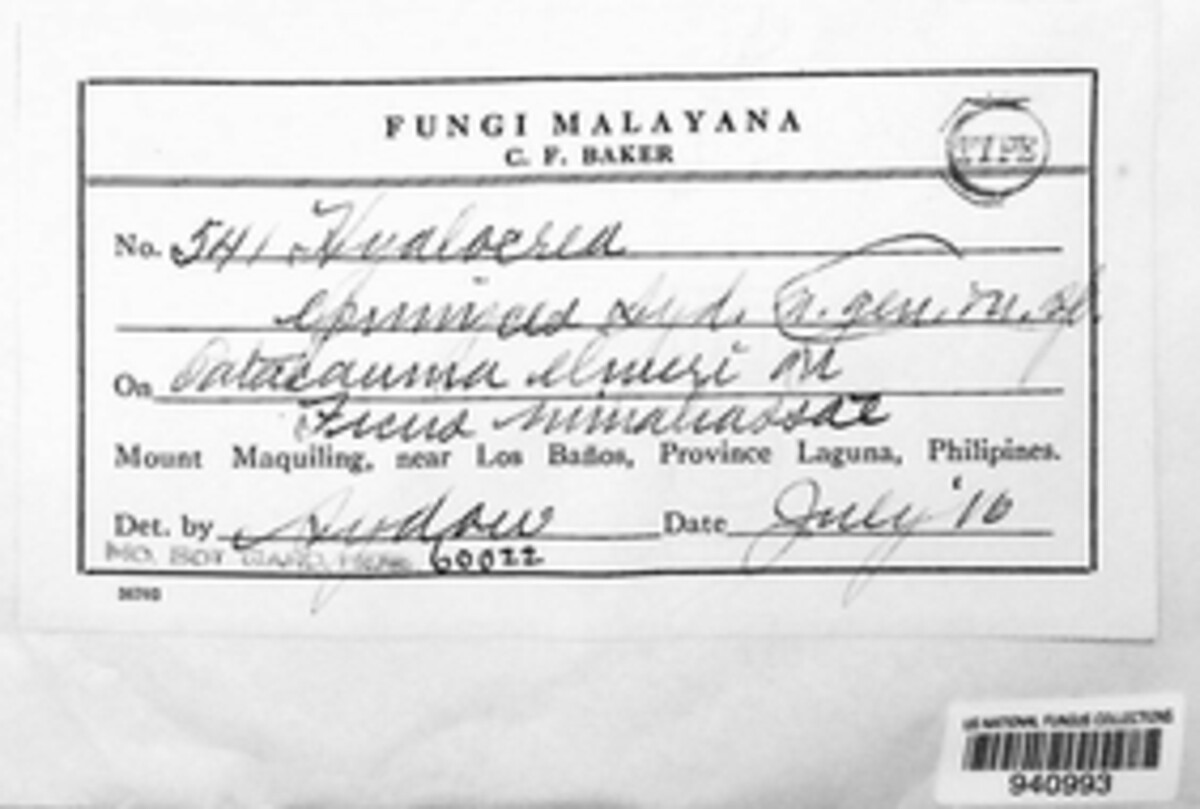 FUNGI MALAYANA
C. F. BAKER
TYPE
No. 541 Hyalocrea
epimyces Syd. n. gen. n. sp.
On Catacauma elmeri on
Ficus minahassae
Mount Maquiling, near Los Baños, Province Laguna, Philipines.
Det. by Sydow Date July '16
MO. BOT. GARD. 60022
US NATIONAL FUNGUS COLLECTIONS
940993